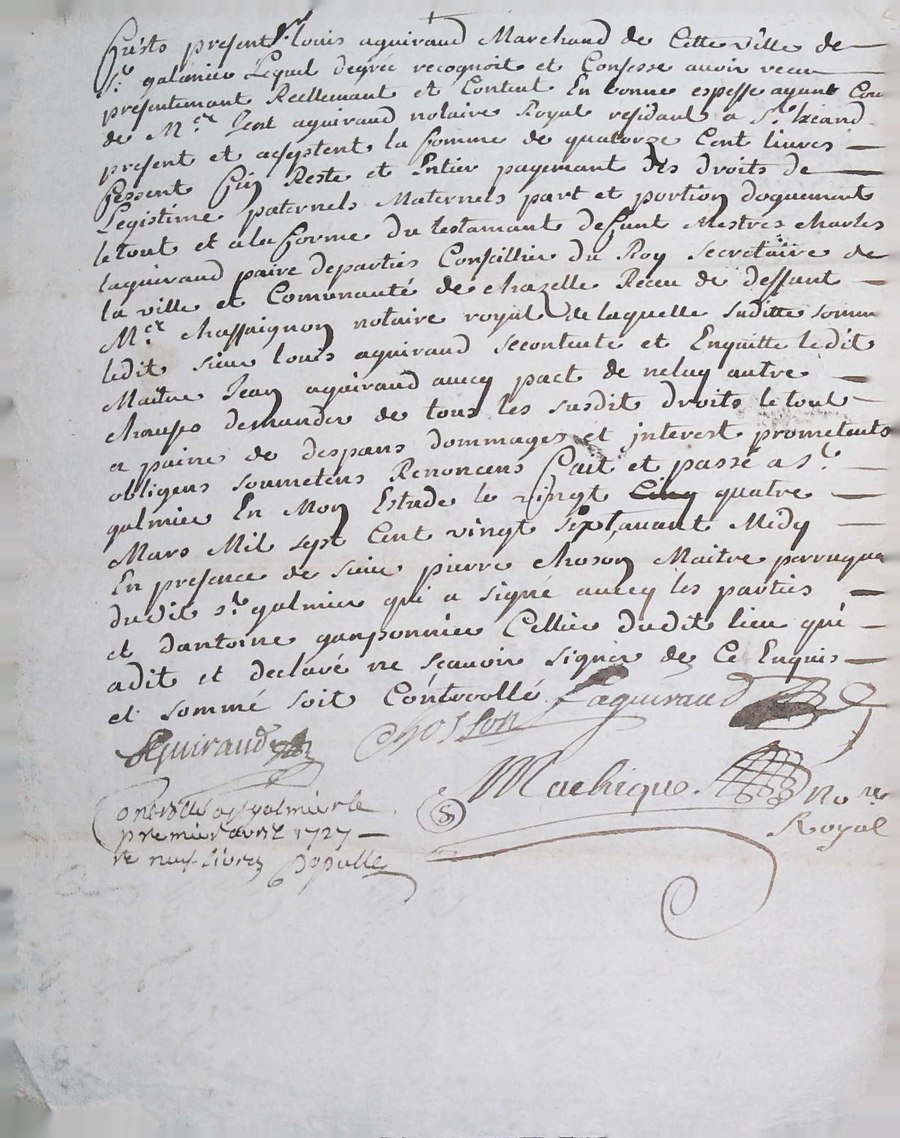 fut présent Sr louis aquiraud Marchand de Cette ville de
St galmier Lequel degré recognoit et Confesse avoir receu
présentemant Reellemant et Content En bonne espesse ayant Cou
de Mer Jean aquiraud notaire Royal residant a St
present et aceptent la somme de quatorze Cent livres
fessent fin Reste et Entier payemant des droits de
Legistime paternels Maternels part et portion doquement
le tout et a la forme du testamant defunt Mestres charles
aquiraud paire departies Conseillier du Roy Secretaire de
la ville et Comunauté de chazelle Receu de deffunt
Mer chassaignon notaire royal de laquelle suditte somme
ledit sieur louis aquiraud secontente et Enquitte ledit
Maitre Jean aquiraud avecq pact de neluy autre
chause demander de tous les susdit droits le tout
a paine de despans dommages et interest prometants
obligens soumetens Renoncens fait et passé a St
galmier En Mon Estude le vingt cinq quatre
Mars Mil sept Cent vingt sept avant Midy
En presence de sieur pierre choson Maitre perruquie
dudit St galmier qui a signé avecq les parties
et dantoine ganponnier Cellier dudit lieu qui
adit et declaré ne scavoir signer de Ce Enquis
et sommé soit Controollé Laquiraud
Aquiraud Chosson
Machique Nore
Royal
ontrolle a st galmier le
premier avril 1727
re neuf livres